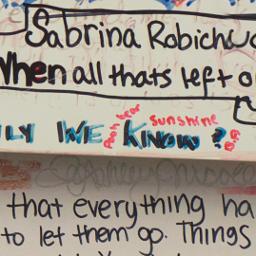 Sabrina Robichu
When all thats left o
LY WE KNOW ?
sunshine
that everything ha
to let them go. Things